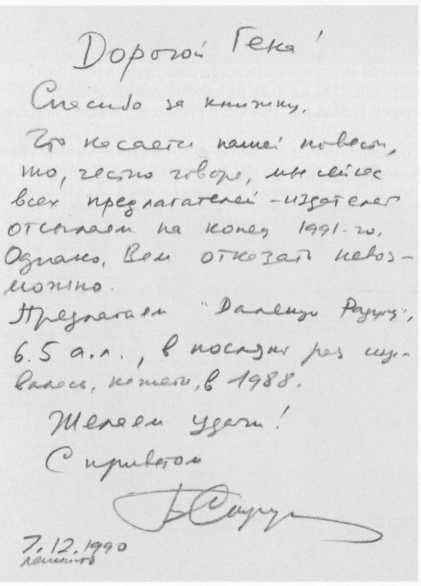 Дорогой Гена!
Спасибо за книжку.
Что касается нашей повести,
то, честно говоря, мы сейчас
всех предлагателей-издателей
отсылаем на конец 1991-го.
Однако, Вам отказать невоз-
можно.
Предлагаем "Далекую Радугу",
6.5 а.л., в последний раз изда-
валась, кажется, в 1988.
Желаем удачи!
С приветом
7.12.1990